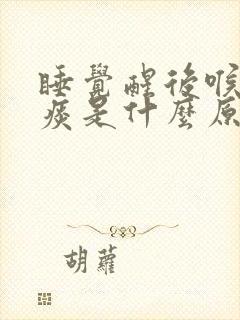 睡覺醒後喉
痰是什麼原
胡蘿